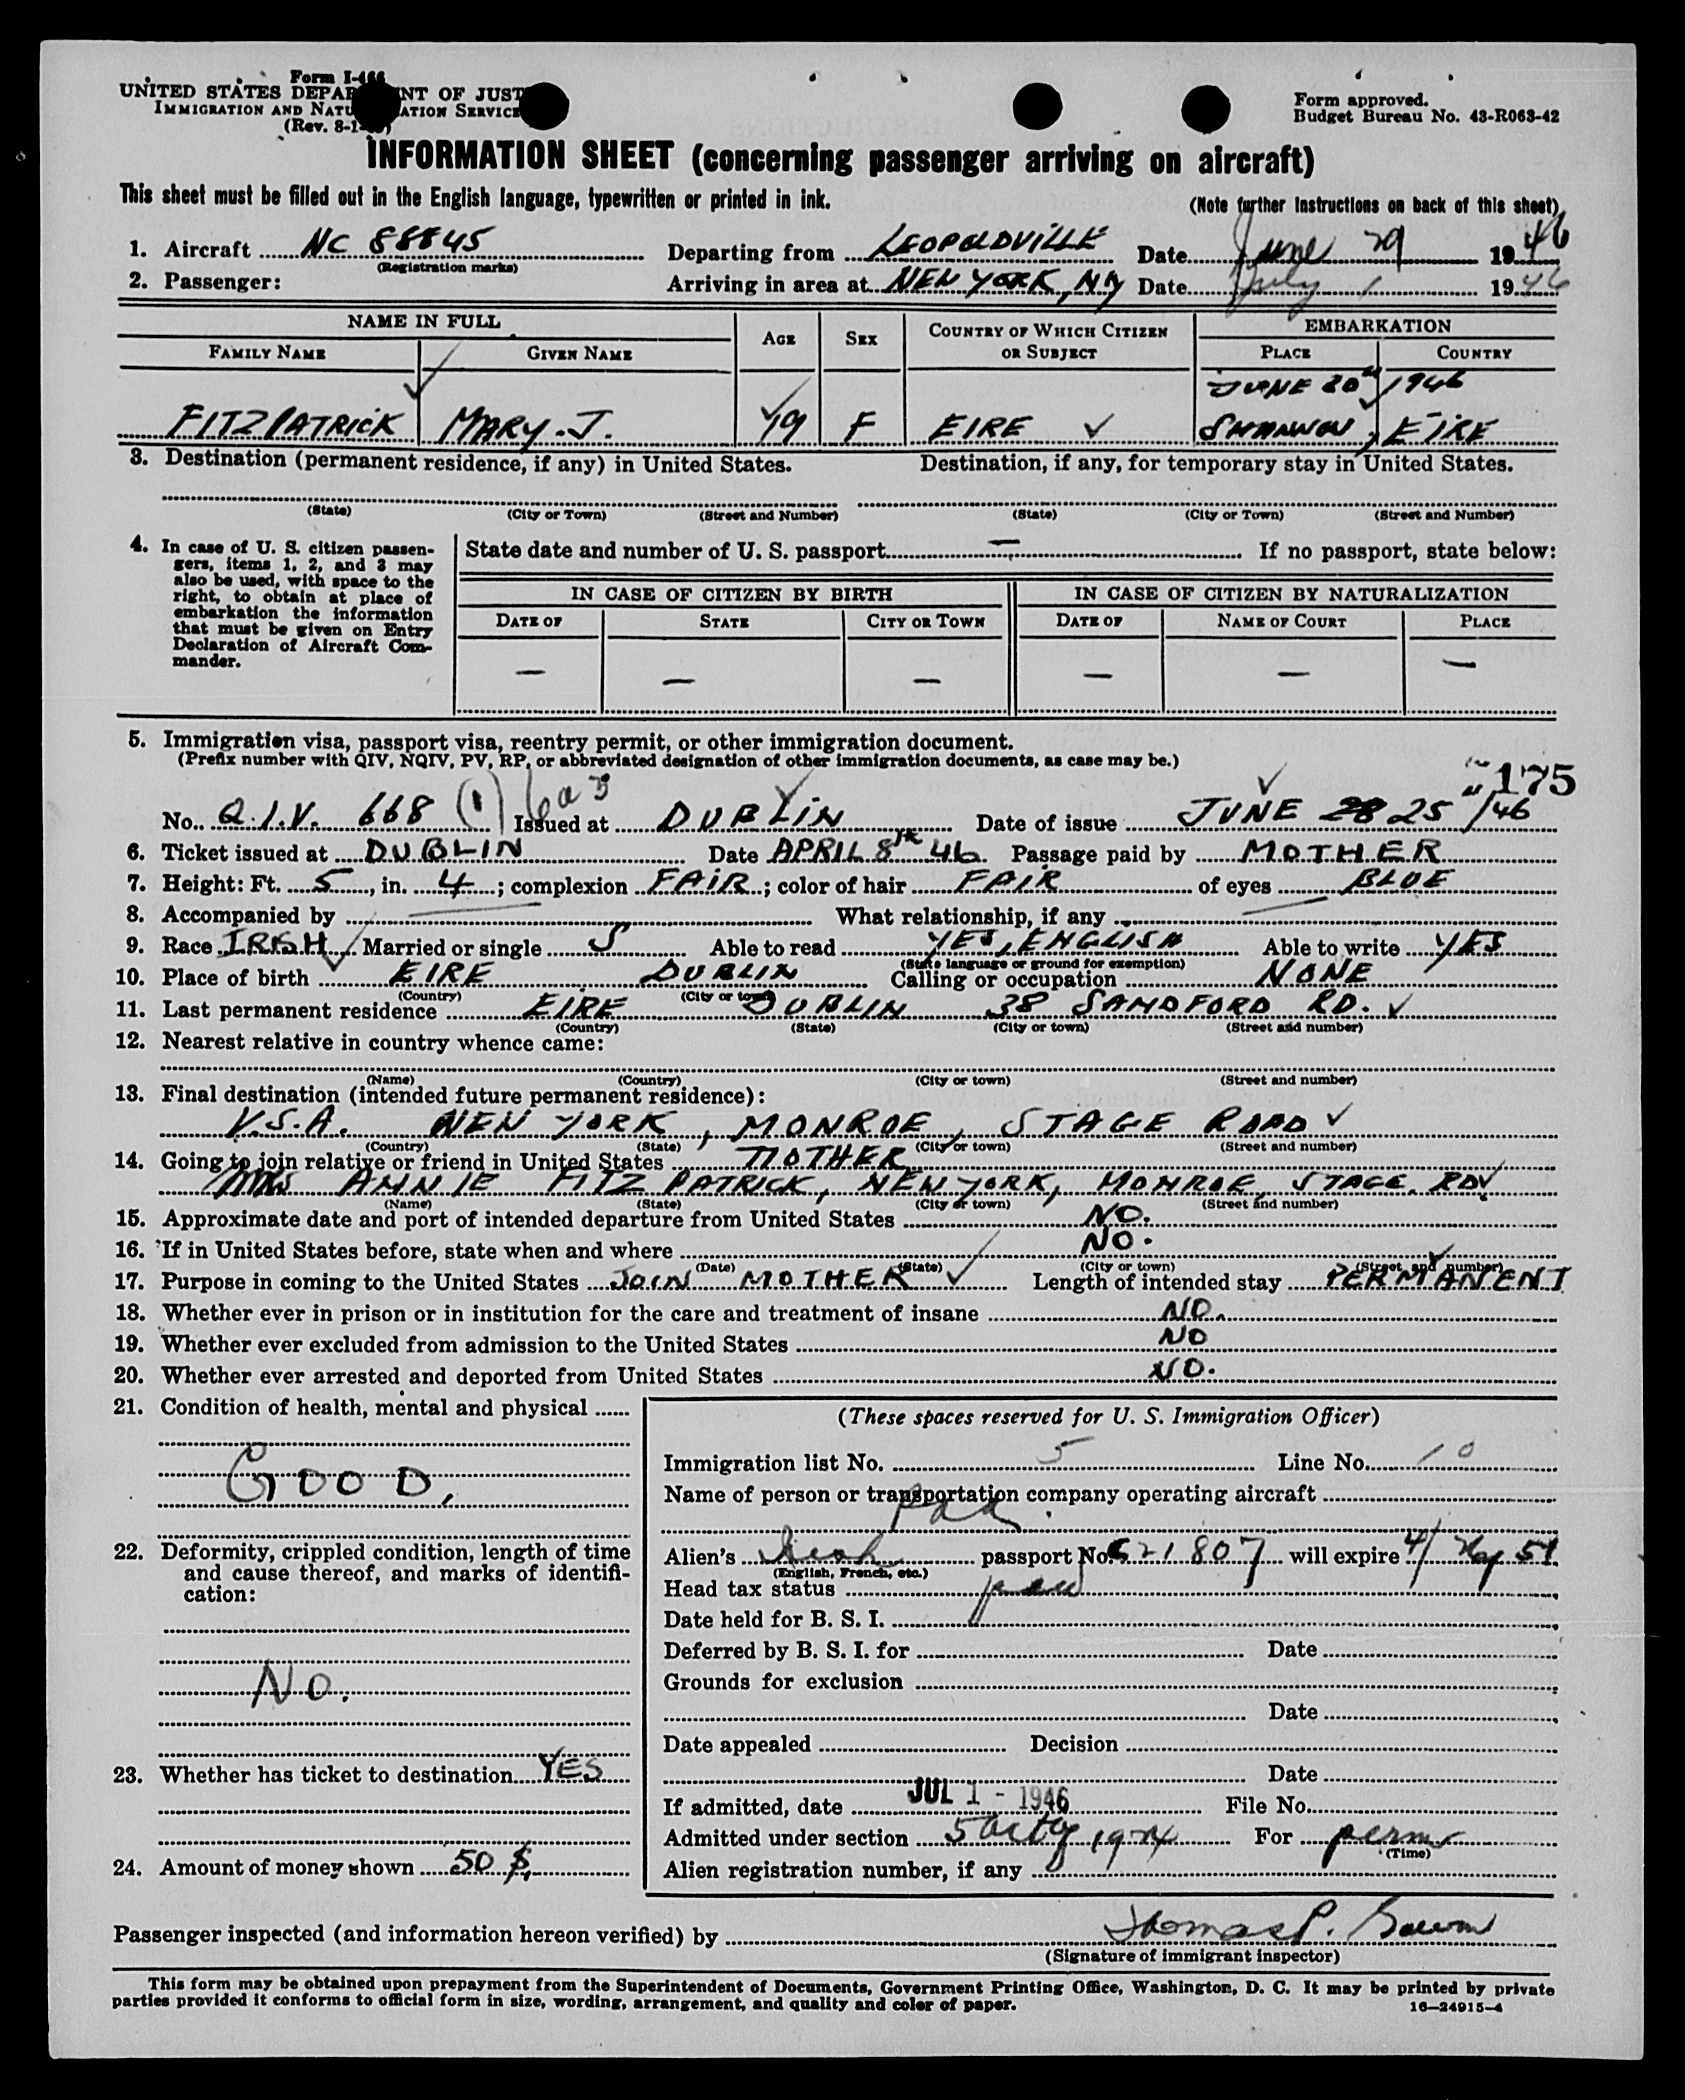 Form I-466
UNITED STATES DEPAR NT OF JUST
IMMIGRATION AND NATU ATION SERVICE
(Rev. 8-1-
Form approved.
Budget Bureau No. 43-R063-42
INFORMATION SHEET (concerning passenger arriving on aircraft)
This sheet must be filled out in the English language, typewritten or printed in ink.
(Note further instructions on back of this sheet)
1. Aircraft NC 88845 Departing from LEOPOLDVILLE Date June 29 1946
(Registration marks)
2. Passenger: Arriving in area at NEW YORK, NY Date July 1 1946
NAME IN FULL AGE SEX COUNTRY OF WHICH CITIZEN OR SUBJECT EMBARKATION
FAMILY NAME GIVEN NAME PLACE COUNTRY
JUNE 30th 1946
FITZPATRICK MARY. J. 19 F EIRE SHANNON, EIRE
3. Destination (permanent residence, if any) in United States. Destination, if any, for temporary stay in United States.
(State) (City or Town) (Street and Number) (State) (City or Town) (Street and Number)
4. In case of U. S. citizen passen-
gers, items 1, 2, and 3 may
also be used, with space to the
right, to obtain at place of
embarkation the information
that must be given on Entry
Declaration of Aircraft Com-
mander.
State date and number of U. S. passport — If no passport, state below:
IN CASE OF CITIZEN BY BIRTH IN CASE OF CITIZEN BY NATURALIZATION
DATE OF STATE CITY OR TOWN DATE OF NAME OF COURT PLACE
— — — — — —
5. Immigration visa, passport visa, reentry permit, or other immigration document.
(Prefix number with QIV, NQIV, PV, RP, or abbreviated designation of other immigration documents, as case may be.)
175
No. Q.I.V. 668 (1) 6a3 Issued at DUBLIN Date of issue JUNE 28 25/46
6. Ticket issued at DUBLIN Date APRIL 8TH 46. Passage paid by MOTHER
7. Height: Ft. 5, in. 4; complexion FAIR; color of hair FAIR of eyes BLUE
8. Accompanied by — What relationship, if any —
9. Race IRISH Married or single S Able to read YES, ENGLISH Able to write YES
(State language or ground for exemption)
10. Place of birth EIRE DUBLIN Calling or occupation NONE
(Country) (City or town)
11. Last permanent residence EIRE DUBLIN 38 SANDFORD RD.
(Country) (State) (City or town) (Street and number)
12. Nearest relative in country whence came:
(Name) (Country) (City or town) (Street and number)
13. Final destination (intended future permanent residence):
U.S.A. NEW YORK, MONROE, STAGE ROAD
(Country) (State) (City or town) (Street and number)
14. Going to join relative or friend in United States MOTHER
MRS ANNIE FITZPATRICK, NEW YORK, MONROE, STAGE. RD
(Name) (State) (City or town) (Street and number)
15. Approximate date and port of intended departure from United States NO.
16. If in United States before, state when and where NO.
(Date) (State) (City or town) (Street and number)
17. Purpose in coming to the United States JOIN MOTHER Length of intended stay PERMANENT
18. Whether ever in prison or in institution for the care and treatment of insane NO.
19. Whether ever excluded from admission to the United States NO
20. Whether ever arrested and deported from United States NO.
21. Condition of health, mental and physical
GOOD,
22. Deformity, crippled condition, length of time
and cause thereof, and marks of identifi-
cation:
NO.
23. Whether has ticket to destination YES
24. Amount of money shown 50 $.
(These spaces reserved for U. S. Immigration Officer)
Immigration list No. 5 Line No. 10
Name of person or transportation company operating aircraft
Paa.
Alien's Irish passport No. C21807 will expire 4/ May 51.
(English, French, etc.)
Head tax status
Date held for B. S. I.
Deferred by B. S. I. for Date
Grounds for exclusion
Date
Date appealed Decision
Date
If admitted, date JUL 1 - 1946 File No.
Admitted under section 5 act of 1924 For perm
(Time)
Alien registration number, if any
Passenger inspected (and information hereon verified) by Thomas P.
(Signature of immigrant inspector)
This form may be obtained upon prepayment from the Superintendent of Documents, Government Printing Office, Washington, D. C. It may be printed by private
parties provided it conforms to official form in size, wording, arrangement, and quality and color of paper.
16—24915-4